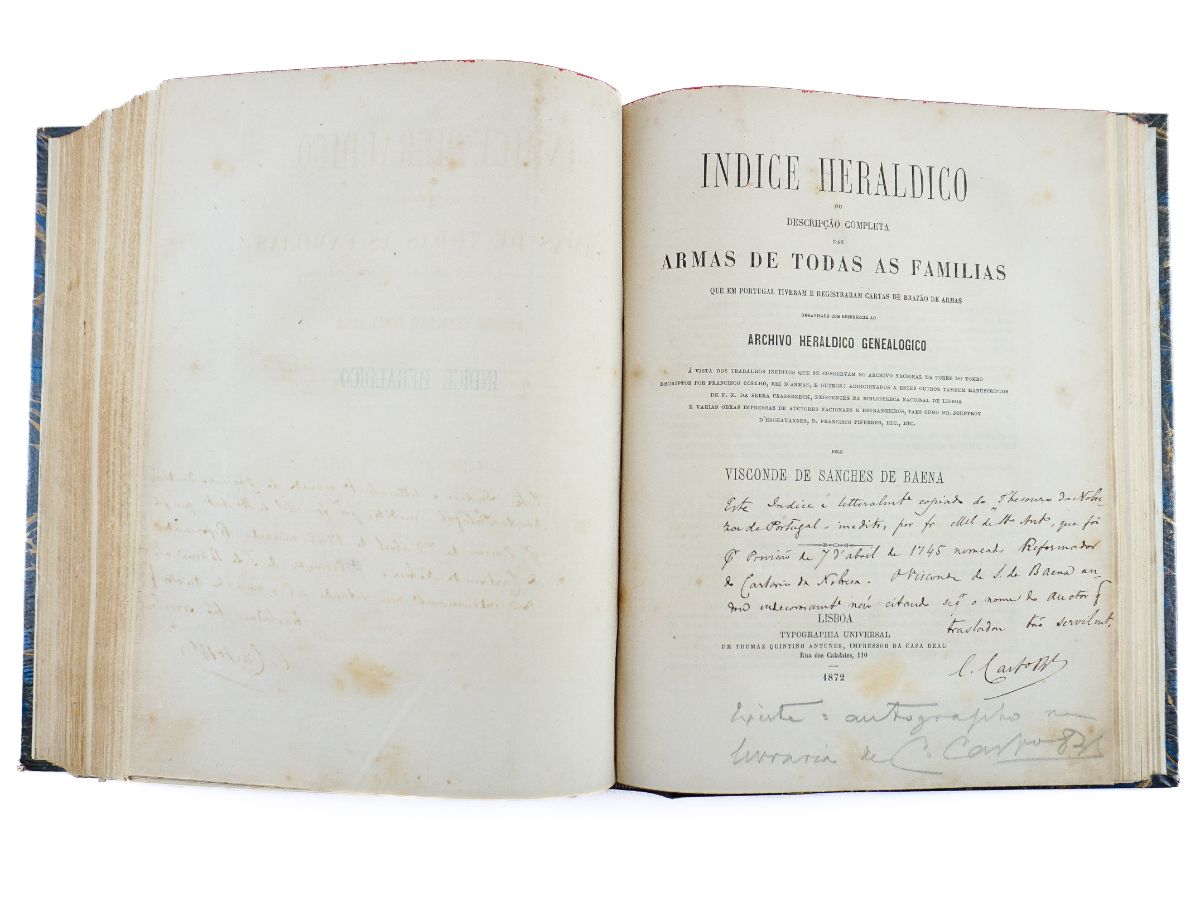 INDICE HERALDICO
OU
DESCRIPÇÃO COMPLETA
DAS
ARMAS DE TODAS AS FAMILIAS
QUE EM PORTUGAL TIVERAM E REGISTRARAM CARTAS DE BRAZÃO DE ARMAS
ORGANISADO COM REFERENCIA AO
ARCHIVO HERALDICO GENEALOGICO
Á VISTA DOS TRABALHOS INEDITOS QUE SE CONSERVAM NO ARCHIVO NACIONAL DA TORRE DO TOMBO
ESCRIPTOS POR FRANCISCO COELHO, REI D'ARMAS, E OUTROS: ADDICIONADOS A ESTES OUTROS TAMBEM MANUSCRIPTOS
DE F. X. DA SERRA CRAESBEECK, EXISTENTES NA BIBLIOTHECA NACIONAL DE LISBOA
E VARIAS OBRAS IMPRESSAS DE AUCTORES NACIONAES E ESTRANGEIROS, TAES COMO MR. JOUFFROY
D'ESCHAVANNES, D. FRANCISCO PIFERRER, ETC., ETC.
PELO
VISCONDE DE SANCHES DE BAENA
Este Indice é litteralmte copiado do "Thesouro da Nobre-
za de Portugal", inedito, por fr. Mel de Sto Anto, que foi
Provisão de 7 d'abril de 1745 nomeado Reformador
do Cartorio da Nobreza. O Visconde de S. de Baena an-
dou indecorosamte não citando seqr o nome do auctor q
trasladou tão servilmte.
C. Casto Bco
LISBOA
TYPOGRAPHIA UNIVERSAL
DE THOMAZ QUINTINO ANTUNES, IMPRESSOR DA CASA REAL
Rua dos Calafates, 110
1872
Existe o autographo na
livraria de C. Castro Bco